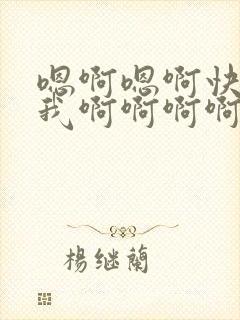 嗯啊嗯啊快
我啊啊啊啊
楊继蘭